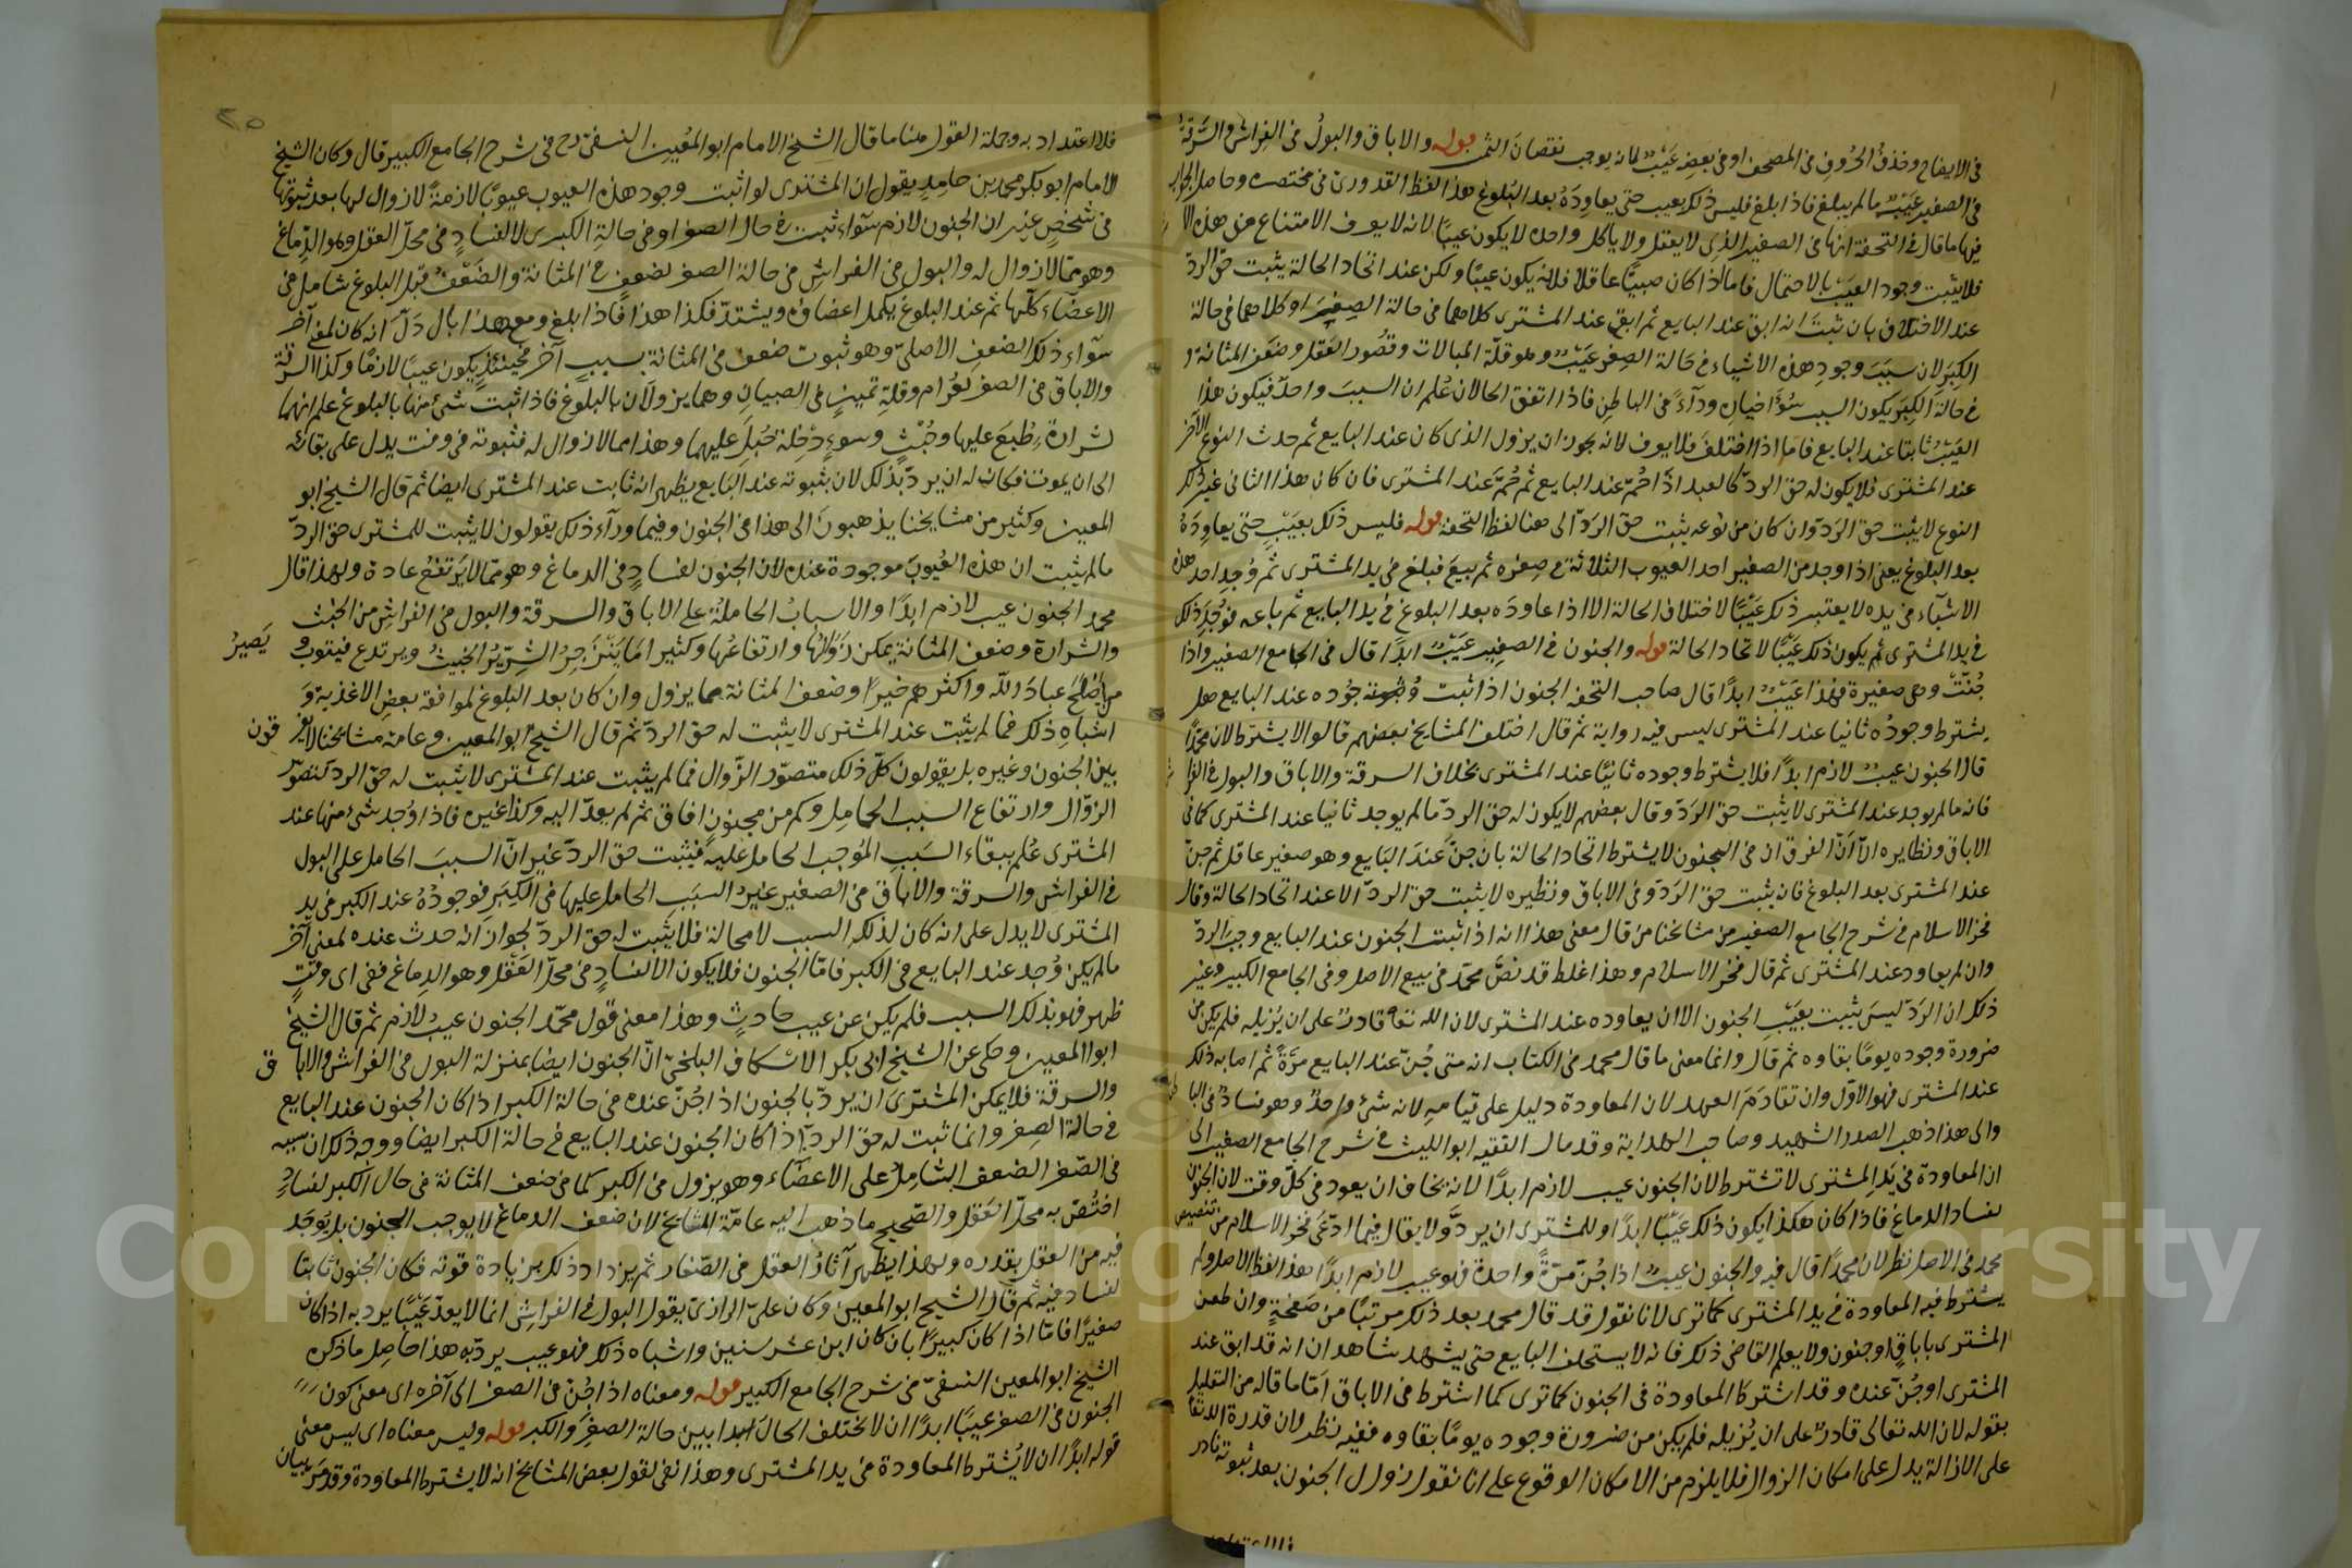 في الايضاح وحذف الحروف في المصحف او في بعضه عيب لانه يوجب نقصان الثمن قوله والاباق والبول في الفراش والسرقة
في الصغير عيب ما لم يبلغ فاذا بلغ فليس ذلك بعيب حتى يعاوده بعد البلوغ هذا لفظ القدوري في مختصره وحاصل الجواب
فيها ما قال في التحفة انها في الصغير الذي لا يعقل ولا ياكل وحده لا يكون عيبا لانه لا يعرف الامتناع عن هذه الا
فلا يثبت وجود العيب بالاحتمال فاما اذا كان صبيا عاقلا فلانه يكون عيبا ولكن عند اتحاد الحالة يثبت حق الرد
عند الاختلاف بان ثبت انه ابق عند البايع ثم ابق عند المشتري كلاهما في حالة الصغير او كلاهما في حالة
الكبر لان سبب وجود هذه الاشياء في حالة الصغر عيب وهو قلة المبالات وقصور العقل وضعف المثانة و
في حالة الكبر يكون السبب سوء اختيار وداء في الباطن فاذا اتفق الحالان علم ان السبب واحد فيكون هذا
العيب ثابتا عند البايع فاما اذا اختلف فلا يعرف لانه يجوز ان يزول الذي كان عند البايع ثم حدث النوع الاخر
عند المشتري فلا يكون له حق الرد كالعبد اذا حم عند البايع ثم حم عند المشتري فان كان هذا الثاني غير ذلك
النوع لا يثبت حق الرد وان كان من نوعه يثبت حق الرد الى هنا لفظ التحفة قوله فليس ذلك بعيب حتى يعاوده
بعد البلوغ يعني اذا وجد من الصغير احد العيوب الثلاثة في صغره ثم بيع فبلغ في يد المشتري ثم وجد احد هذه
الاشياء في يده لا يعتبر ذلك عيبا لاختلاف الحالة الا اذا عاوده بعد البلوغ في يد البايع ثم باعه فوجد ذلك
في يد المشتري ثم يكون ذلك عيبا لاتحاد الحالة قوله والجنون في الصغير عيب ابدا قال في الجامع الصغير واذا
جنت وهي صغيرة فهذا عيب ابدا قال صاحب التحفة الجنون اذا ثبت وجوده عند البايع هل
يشترط وجوده ثانيا عند المشتري ليس فيه رواية ثم قال اختلف المشايخ بعضهم قالوا لا يشترط لان محمدا
قال الجنون عيب لازم ابدا فلا يشترط وجوده ثانيا عند المشتري بخلاف السرقة والاباق والبول في الفرا
فانه ما لم يوجد عند المشتري لا يثبت حق الرد وقال بعضهم لا يكون له حق الرد ما لم يوجد ثانيا عند المشتري كما في
الاباق ونظايره الا ان الفرق ان في الجنون لا يشترط اتحاد الحالة بان جن عند البايع وهو صغير عاقل ثم جن
عند المشتري بعد البلوغ فان يثبت حق الرد وفي الاباق ونظيره لا يثبت حق الرد الا عند اتحاد الحالة وقال
فخر الاسلام في شرح الجامع الصغير من مشايخنا من قال معنى هذا انه اذا ثبت الجنون عند البايع وجب الرد
وان لم يعاود عند المشتري ثم قال فخر الاسلام وهذا غلط قد نص محمد في بيع الاصل وفي الجامع الكبير وغير
ذلك ان الرد ليس يثبت بعيب الجنون الا ان يعاوده عند المشتري لان الله تعا قادر على ان يزيله فلم يكن من
ضرورة وجوده يوما بقاوه ثم قال وانما معنى ما قال محمد في الكتاب انه متى جن عند البايع مرة ثم اصابه ذلك
عند المشتري فهو الاول وان تقادم العهد لان المعاودة دليل على قيامه لانه شيء واحد وهو فساد في البا
والى هذا ذهب الصدر الشهيد وصاحب الهداية وقد مال الفقيه ابو الليث في شرح الجامع الصغير الى
ان المعاودة في يد المشتري لا تشترط لان الجنون عيب لازم ابدا لانه يخاف ان يعود في كل وقت لان الجنون
لفساد الدماغ فاذا كان هكذا يكون ذلك عيبا ابدا وللمشتري ان يرد ولا يقال فيما ادعى فخر الاسلام من تنصيص
محمد في الاصل نظر لان محمدا قال فيه والجنون عيب اذا جن مرة واحدة فهو عيب لازم ابدا هذا لفظ الاصل ولم
يشترط فيه المعاودة في يد المشتري كما ترى لانا نقول قد قال محمد بعد ذلك مرتبا من صفحة وان طعن
المشتري باباق او جنون ولا يعلم القاضي ذلك فانه لا يستحلف البايع حتى يشهد شاهدان انه قد ابق عند
المشتري او جن عنده وقد اشترط المعاودة في الجنون كما ترى كما اشترط في الاباق اما ما قاله من التعليل
بقوله لان الله تعالى قادر على ان يزيله فلم يكن من ضرورة وجوده يوما بقاوه ففيه نظر لان قدرة الله تعا
على الازالة يدل على امكان الزوال فلا يلزم من الامكان الوقوع على انا نقول زوال الجنون بعد ثبوته نادر
فلا اعتداد به وجملة القول هنا ما قال الشيخ الامام ابو المعين النسفي رح في شرح الجامع الكبير قال وكان الشيخ
الامام ابو بكر محمد بن حامد يقول ان المشتري لو اثبت وجود هذه العيوب عيوبا لازمة لا زوال لها بعد ثبوتها
في شخص غير ان الجنون لازم سواء ثبت في حال الصغر او في حالة الكبرى لا لفساد في محل العقل وهو الدماغ
وهو مما لا زوال له والبول في الفراش في حالة الصغر لضعف في المثانة والضعف قبل البلوغ شامل في
الاعضاء كلها ثم عند البلوغ يكمل اعضاؤه ويشتد فكذا هذا فاذا بلغ ومع هذا بال دل انه كان لمعنى آخر
سواء ذلك الضعف الاصلي وهو ثبوت ضعف في المثانة بسبب آخر فحينئذ يكون عيبا لازما وكذا السرقة
والاباق في الصغر لغرام وقلة تمييز في الصبيان وهما يزولان بالبلوغ فاذا ثبت شيء منها بالبلوغ علم انهما
لشرارة طبع عليها وخبث وسوء دخلة جبل عليهما وهذا مما لا زوال له فثبوته في وقت يدل على بقائه
الى ان يموت فكان له ان يرد بذلك لان بثبوته عند البايع يظهر انه ثابت عند المشتري ايضا ثم قال الشيخ ابو
المعين وكثير من مشايخنا يذهبون الى هذا في الجنون وفيما وراء ذلك يقولون لا يثبت للمشتري حق الرد
ما لم يثبت ان هذه العيوب موجودة عنده لان الجنون لفساد في الدماغ وهو مما لا يرتفع عادة ولهذا قال
محمد الجنون عيب لازم ابدا والاسباب الحاملة على الاباق والسرقة والبول في الفراش من الخبث
والشرارة وضعف المثانة يمكن زوالها وارتفاعها وكثيرا ما ينزجر الشرير الخبيث ويرتدع فيتوب و يصير
من اصلح عباد الله واكثرهم خيرا وضعف المثانة مما يزول وان كان بعد البلوغ لموافقة بعض الاغذية و
اشباه ذلك فما لم يثبت عند المشتري لا يثبت له حق الرد ثم قال الشيخ ابو المعين وعامة مشايخنا لا يفر قون
بين الجنون وغيره بل يقولون كل ذلك متصور الزوال فما لم يثبت عند المشتري لا يثبت له حق الرد لتصور
الزوال وارتفاع السبب الحامل وكم من مجنون افاق ثم لم يعد اليه وكذا غيره فاذا وجد شيء منها عند
المشتري علم ببقاء السبب الموجب الحامل عليه فيثبت حق الرد غير ان السبب الحامل على البول
في الفراش والسرقة والاباق في الصغير غير السبب الحامل عليها في الكبر فوجوده عند الكبر في يد
المشتري لا يدل على انه كان لذلك السبب لا محالة فلا يثبت له حق الرد لجواز انه حدث عنده لمعنى آخر
ما لم يكن وجد عند البايع في الكبر فاما الجنون فلا يكون الا لفساد في محل العقل وهو الدماغ ففي اي وقت
ظهر فهو بذلك السبب فلم يكن عن عيب حادث وهذا معنى قول محمد الجنون عيب لازم ثم قال الشيخ
ابو المعين وحكي عن الشيخ ابي بكر الاسكاف البلخي ان الجنون ايضا بمنزلة البول في الفراش والابا ق
والسرقة فلا يمكن المشتري ان يرد بالجنون اذا جن عنده في حالة الكبر اذا كان الجنون عند البايع
في حالة الصغر وانما ثبت له حق الرد اذا كان الجنون عند البايع في حالة الكبر ايضا ووجه ذلك ان سببه
في الصغر الضعف الشامل على الاعضاء وهو يزول في الكبر كما في ضعف المثانة في حال الكبر لفساد
اختص به محل العقل والصحيح ما ذهب اليه عامة المشايخ لان ضعف الدماغ لا يوجب الجنون بل يوجد
فيه من العقل بقدره ولهذا يظهر آثار العقل في الصغار ثم يزداد ذلك بزيادة قوته فكان الجنون ثابتا
لفساد فيه ثم قال الشيخ ابو المعين وكان علي الرازي يقول البول في الفراش انما لا يعد عيبا يرد به اذا كان
صغيرا فاما اذا كان كبيرا بان كان ابن عشر سنين واشباه ذلك فهو عيب يرد به هذا حاصل ما ذكره
الشيخ ابو المعين النسفي في شرح الجامع الكبير قوله ومعناه اذا جن في الصغر الى آخره اي معنى كون
الجنون في الصغر عيبا ابدا ان لا يختلف الحال ابدا بين حالة الصغر والكبر قوله وليس معناه اي ليس معنى
قوله ابدا ان لا يشترط المعاودة في يد المشتري وهذا نفي لقول بعض المشايخ انه لا يشترط المعاودة وقد مر بيان
Copyright © King Saud University